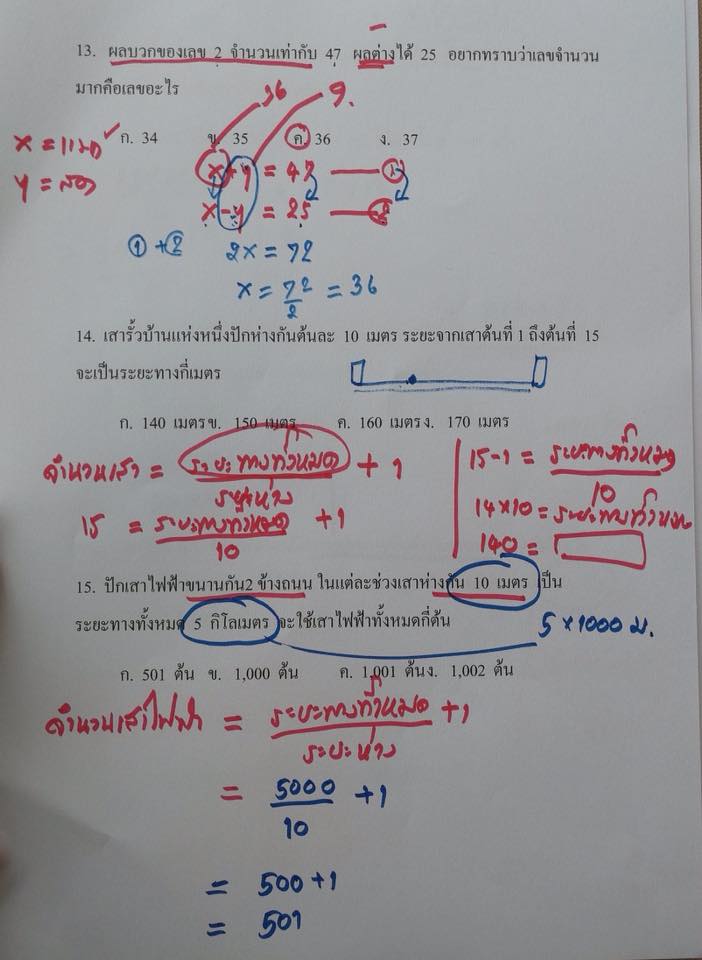 13. ผลบวกของเลข 2 จำนวนเท่ากับ 47 ผลต่างได้ 25 อยากทราบว่าเลขจำนวน
มากคือเลขอะไร
36 9.
ก. 34 ข. 35 ค. 36 ง. 37
x = มาก
y = น้อย
x + y = 47 — 1
x - y = 25 — 2
1 + 2 2x = 72
x = 72/2 = 36
14. เสารั้วบ้านแห่งหนึ่งปักห่างกันต้นละ 10 เมตร ระยะจากเสาต้นที่ 1 ถึงต้นที่ 15
จะเป็นระยะทางกี่เมตร
ก. 140 เมตร ข. 150 เมตร ค. 160 เมตร ง. 170 เมตร
จำนวนเสา = ระยะทางทั้งหมด/ระยะห่าง + 1
15 = ระยะทางทั้งหมด/10 + 1
15-1 = ระยะทางทั้งหมด/10
14×10 = ระยะทางทั้งหมด
140 =
15. ปักเสาไฟฟ้าขนานกัน2 ข้างถนน ในแต่ละช่วงเสาห่างกัน 10 เมตร เป็น
ระยะทางทั้งหมด 5 กิโลเมตร จะใช้เสาไฟฟ้าทั้งหมดกี่ต้น
5 × 1000 ม.
ก. 501 ต้น ข. 1,000 ต้น ค. 1,001 ต้น ง. 1,002 ต้น
จำนวนเสาไฟฟ้า = ระยะทางทั้งหมด/ระยะห่าง + 1
= 5000/10 + 1
= 500 + 1
= 501